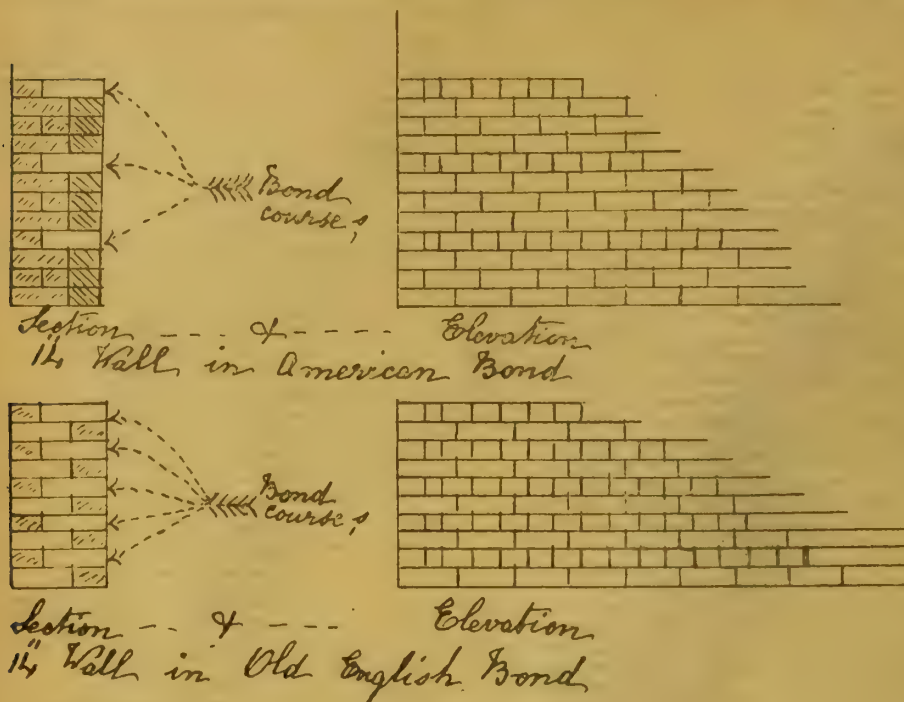 Bond
courses,
Section --- & --- Elevation
14" Wall in American Bond
Bond
courses,
Section --- & --- Elevation
14" Wall in Old English Bond